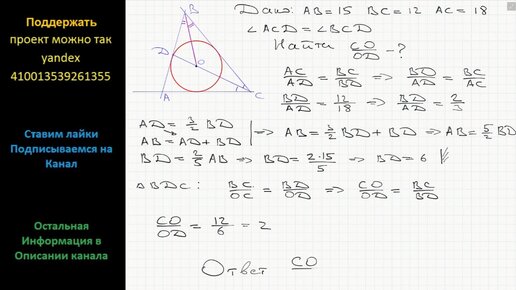 Поддержать
проект можно так
yandex
410013539261355
Ставим лайки
Подписываемся на
Канал
Остальная
Информация в
Описании канала
B
D
O
A
C
Дано: AB = 15 BC = 12 AC = 18
∠ACD = ∠BCD
Найти CO/OD - ?
AC/AD = BC/BD => BD/AD = BC/AC
BD/AD = 12/18 => BD/AD = 2/3
AD = 3/2 BD
AB = AD + BD => AB = 3/2 BD + BD => AB = 5/2 BD
BD = 2/5 AB => BD = 2·15/5 => BD = 6
△BDC: BC/OC = BD/OD => CO/OD = BC/BD
CO/OD = 12/6 = 2
Ответ CO